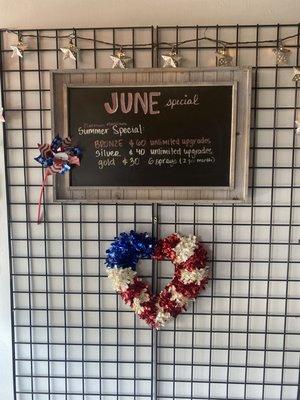 JUNE special
Summer Special:
BRONZE $60 unlimited upgrades
silver $40 unlimited upgrades
gold $30 6 sprays (2 per month)